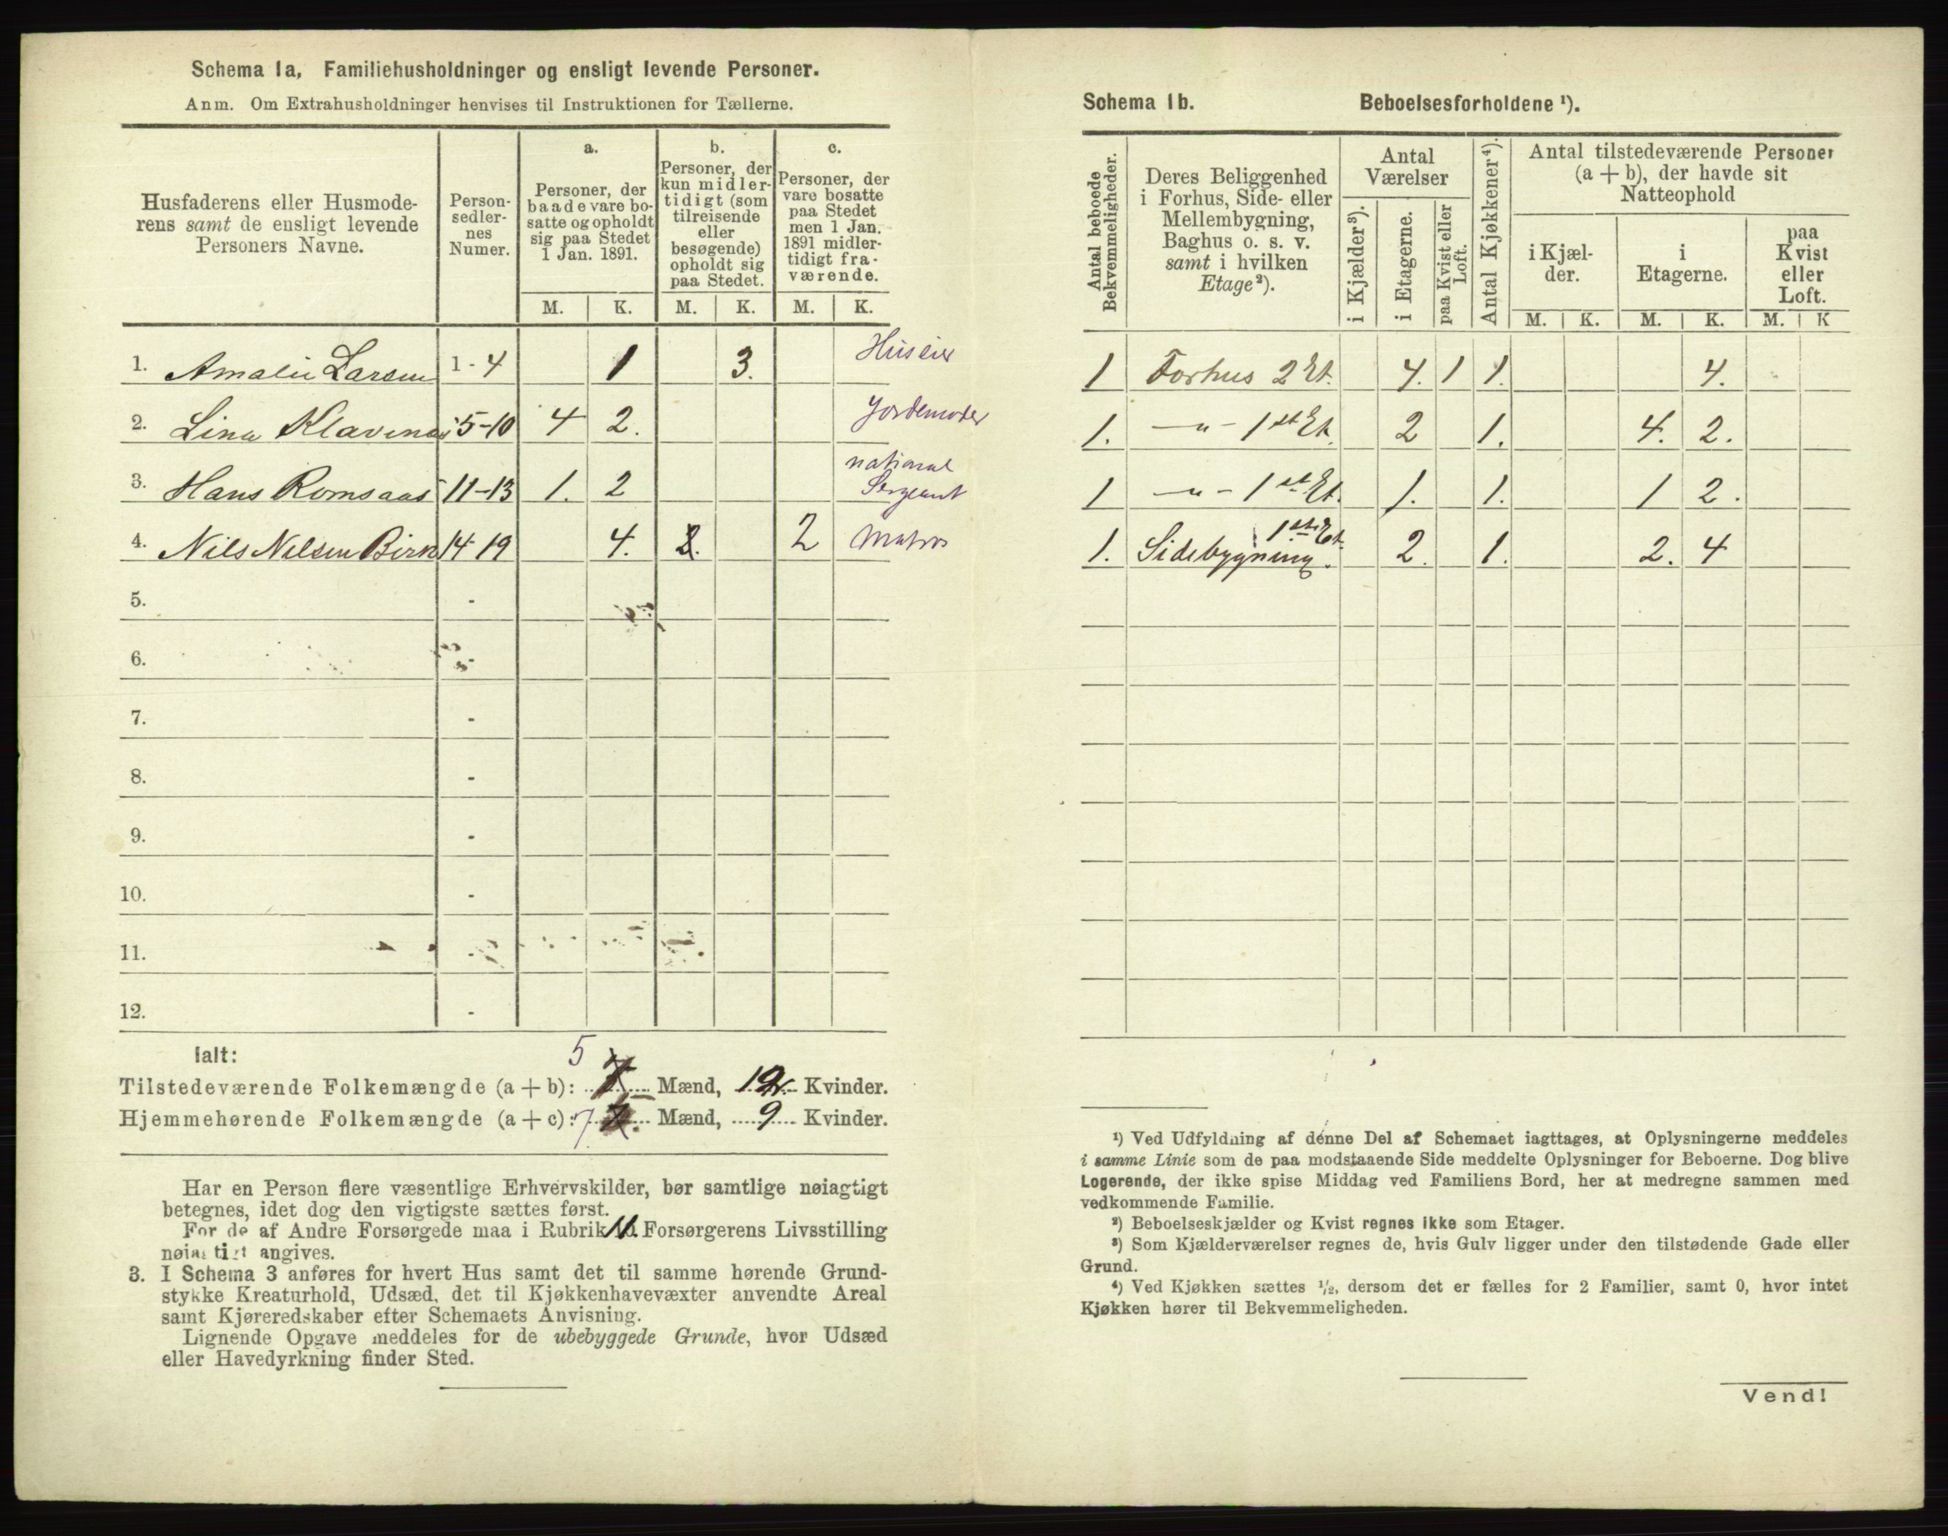 Schema 1a, Familiehusholdninger og ensligt levende Personer.
Anm. Om Extrahusholdninger henvises til Instruktionen for Tællerne.
Husfaderens eller Husmode-
rens samt de ensligt levende
Personers Navne.
Person-
sedler-
nes
Numer.
a.
Personer, der
baade vare bo-
satte og opholdt
sig paa Stedet
1 Jan. 1891.
b.
Personer, der
kun midler-
tidigt (som
tilreisende
eller
besøgende)
opholdt sig
paa Stedet.
c.
Personer, der
vare bosatte
paa Stedet
men 1 Jan.
1891 midler-
tidigt fra-
værende.
M. K. M. K. M. K.
1. Amalie Larsen 1-4 1 3. Huseier
2. Lina 5-10 4 2. Jordemoder
3. Hans Romsaas 11-13 1. 2 national Sergeant
4. Nils Nilsen Birk 14-19 4. 2. 2 Matros
5. -
6. -
7. -
8. -
9. -
10. -
11. -
12. -
Ialt:
Tilstedeværende Folkemængde (a + b): 5 Mænd, 12 Kvinder.
Hjemmehørende Folkemængde (a + c): 7 Mænd, 9 Kvinder.
Har en Person flere væsentlige Erhvervskilder, bør samtlige nøiagtigt
betegnes, idet dog den vigtigste sættes først.
For de af Andre Forsørgede maa i Rubrik 10. Forsørgerens Livsstilling
nøiagtigt angives.
3. I Schema 3 anføres for hvert Hus samt det til samme hørende Grund-
stykke Kreaturhold, Udsæd, det til Kjøkkenhavevæxter anvendte Areal
samt Kjøreredskaber efter Schemaets Anvisning.
Lignende Opgave meddeles for de ubebyggede Grunde, hvor Udsæd
eller Havedyrkning finder Sted.
Schema 1b. Beboelsesforholdene ¹).
Antal beboede
Bekvemmeligheder.
Deres Beliggenhed
i Forhus, Side- eller
Mellembygning,
Baghus o. s. v.
samt i hvilken
Etage²).
Antal
Værelser
i Kjælder³).
i Etagerne.
paa Kvist eller
Loft.
Antal Kjøkkener⁴).
Antal tilstedeværende Personer
(a + b), der havde sit
Natteophold
i Kjæl-
der.
i
Etagerne.
paa
Kvist
eller
Loft.
M. K. M. K. M. K
1 Forhus 2 Et. 4. 1 1. 4.
1. —"— 1st Et. 2 1. 4. 2.
1 —"— 1st Et. 1. 1. 1 2.
1. Sidebygning 1st Et. 2. 1. 2. 4
¹) Ved Udfyldning af denne Del af Schemaet iagttages, at Oplysningerne meddeles
i samme Linie som de paa modstaaende Side meddelte Oplysninger for Beboerne. Dog blive
Logerende, der ikke spise Middag ved Familiens Bord, her at medregne sammen med
vedkommende Familie.
²) Beboelseskjælder og Kvist regnes ikke som Etager.
³) Som Kjælderværelser regnes de, hvis Gulv ligger under den tilstødende Gade eller
Grund.
⁴) Ved Kjøkken sættes ½, dersom det er fælles for 2 Familier, samt 0, hvor intet
Kjøkken hører til Bekvemmeligheden.
Vend!